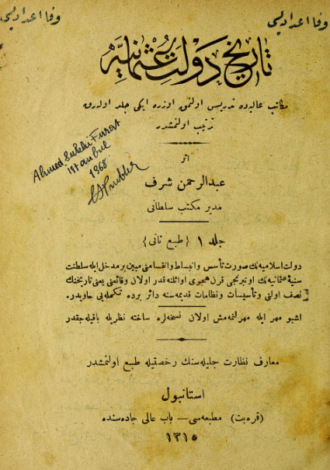 وفا اعدادیسی
وفا اعدادیسی
تاریخ دولت عثمانیه
مکاتب عالیه‌ده تدریس اولنمق اوزره ایکی جلد اوله‌رق
ترتیب اولنمشدر
Ahmed
istanbul
1968
اثر
عبدالرحمن شرف
مدیر مکتب سلطانی
جلد ١ {طبع ثانی}
دولت اسلامیه‌نك صورت تأسس وانبساط وانقسامنی مبین بر مدخل ایله سلطنت
سنیۀ عثمانیه‌نك اونبرنجی قرن هجری اوائلنه قدر اولان وقایعنی یعنی تاریخنك
نصف اولنی وتأسیسات ونظامات قدیمه‌سنه دائر برده تکمله‌یی حاویدر.
اشبو مهر ایله مهرلنمه‌مش اولان نسخه‌لره ساخته نظریله باقیله‌جقدر
معارف نظارت جلیله‌سنك رخصتیله طبع اولنمشدر
استانبول
(قره‌بت) مطبعه‌سی — باب عالی جاده‌سنده
١٣١٥